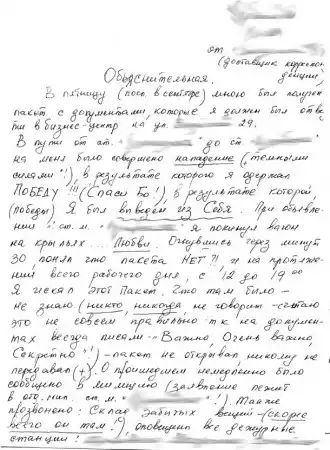 от
(доставщик корреспон
денции)
Объяснительная.
В пятницу (посл. в сентябре) мною был получен
пакет с документами, которые я должен был отвез
ти в бизнес-центр на ул. 29.
В пути от ст. " " до ст.
на меня было совершено нападение ("тёмными
силами"!), в результате которого я одержал
ПОБЕДУ!!! (Спаси Бо!), в результате которой
(победы) Я был выведен из Себя. При объявле-
нии "ст. м. " " я покинул вагон
на крыльях... Любви. Очнувшись через минут
30 понял что пакета НЕТ?! и на протяже-
нии всего рабочего дня, с 12 до 19 00
Я искал Этот Пакет. Что там было –
не знаю (никто, никогда не говорит - считаю
это не совсем правильно т.к на докумен-
тах всегда писали - Важно, Очень важно,
Секретно"!) - пакет не открывал никому не
передавал (+). О произшедшем немедленно было
сообщено в милицию (заявление лежит
в ст. м. " "!). Также
прозвонено: Склад забытых вещей (скорее
всего он там!), оповещены все дежурные
станции!